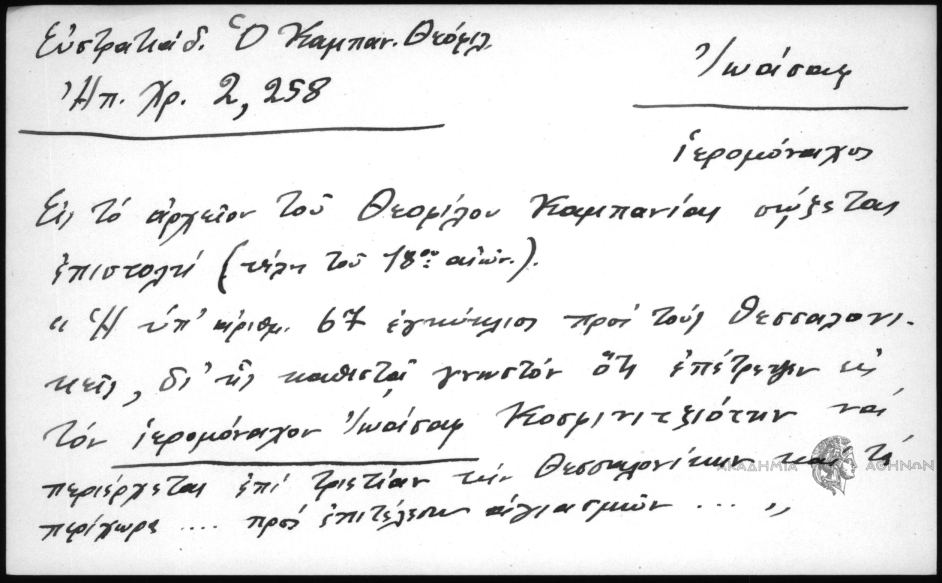 Εὐστρατιάδ. Ὁ Καμπαν. Θεόφιλ.
Ἠπ. Χρ. 2, 258
Ἰωάσαφ
ἱερομόναχος
Εἰς τό ἀρχεῖον τοῦ Θεοφίλου Καμπανίας σώζεται
ἐπιστολή (τέλη τοῦ 18ου αἰών.).
"Ἡ ὑπ' ἀριθμ. 67 ἐγκύκλιος πρός τούς Θεσσαλονι-
κεῖς, δι' ἧς καθιστᾷ γνωστόν ὅτι ἐπέτρεψεν εἰς
τόν ἱερομόναχον Ἰωάσαφ Κοσμινιτζιώτην νά
περιέρχεται ἐπί τριετίαν τήν Θεσσαλονίκην καί τά
περίχωρα .... πρός ἐπιτέλεσιν ἁγιασμῶν ... "
ΑΚΑΔΗΜΙΑ ΑΘΗΝΩΝ